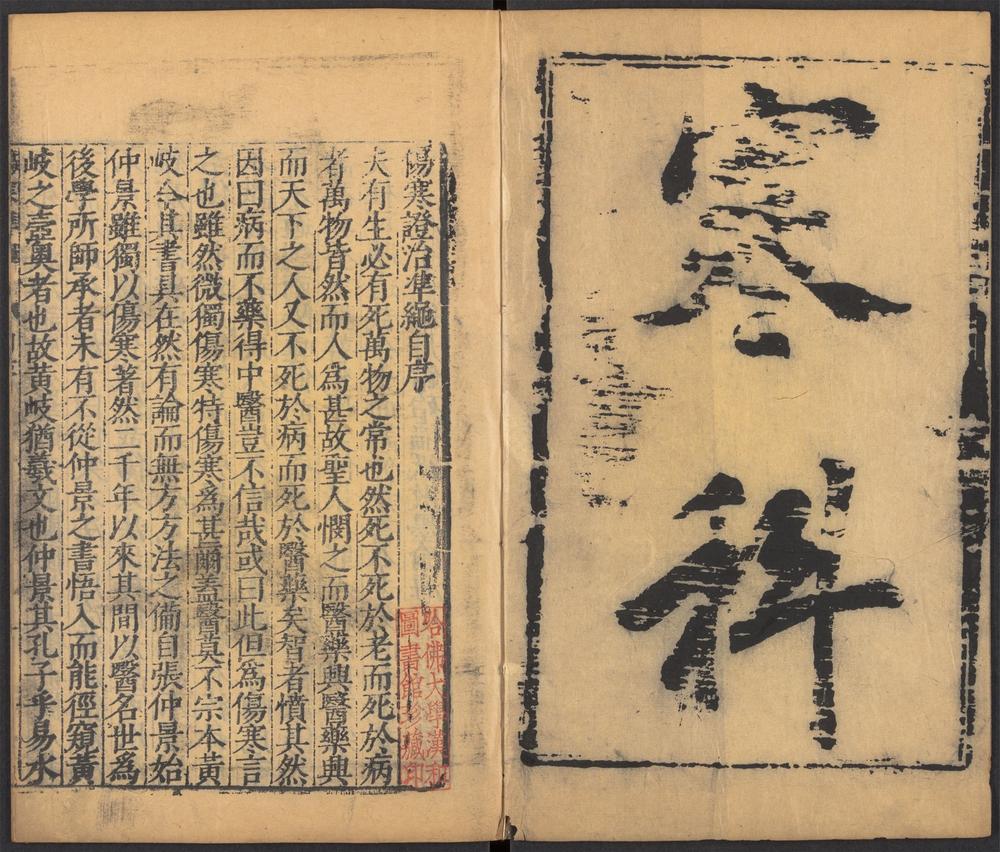 寒科
傷寒證治準繩自序
夫有生必有死萬物之常也然死不死於老而死於病
者萬物皆然而人為甚故聖人憫之而醫藥興醫藥興
而天下之人又不死於病而死於醫藥矣智者憤其然
因曰病而不藥得中醫豈不信哉或曰此但為傷寒言
之也雖然微獨傷寒特傷寒為甚爾蓋醫莫不宗本黃
岐今其書具在然有論而無方方法之備自張仲景始
仲景雖獨以傷寒著然二千年以來其間以醫名世為
後學所師承者未有不從仲景之書悟入而能徑窺黃
岐之壼奧者也故黃岐猶羲文也仲景其孔子乎易水
哈佛大學漢和
圖書館珍藏印